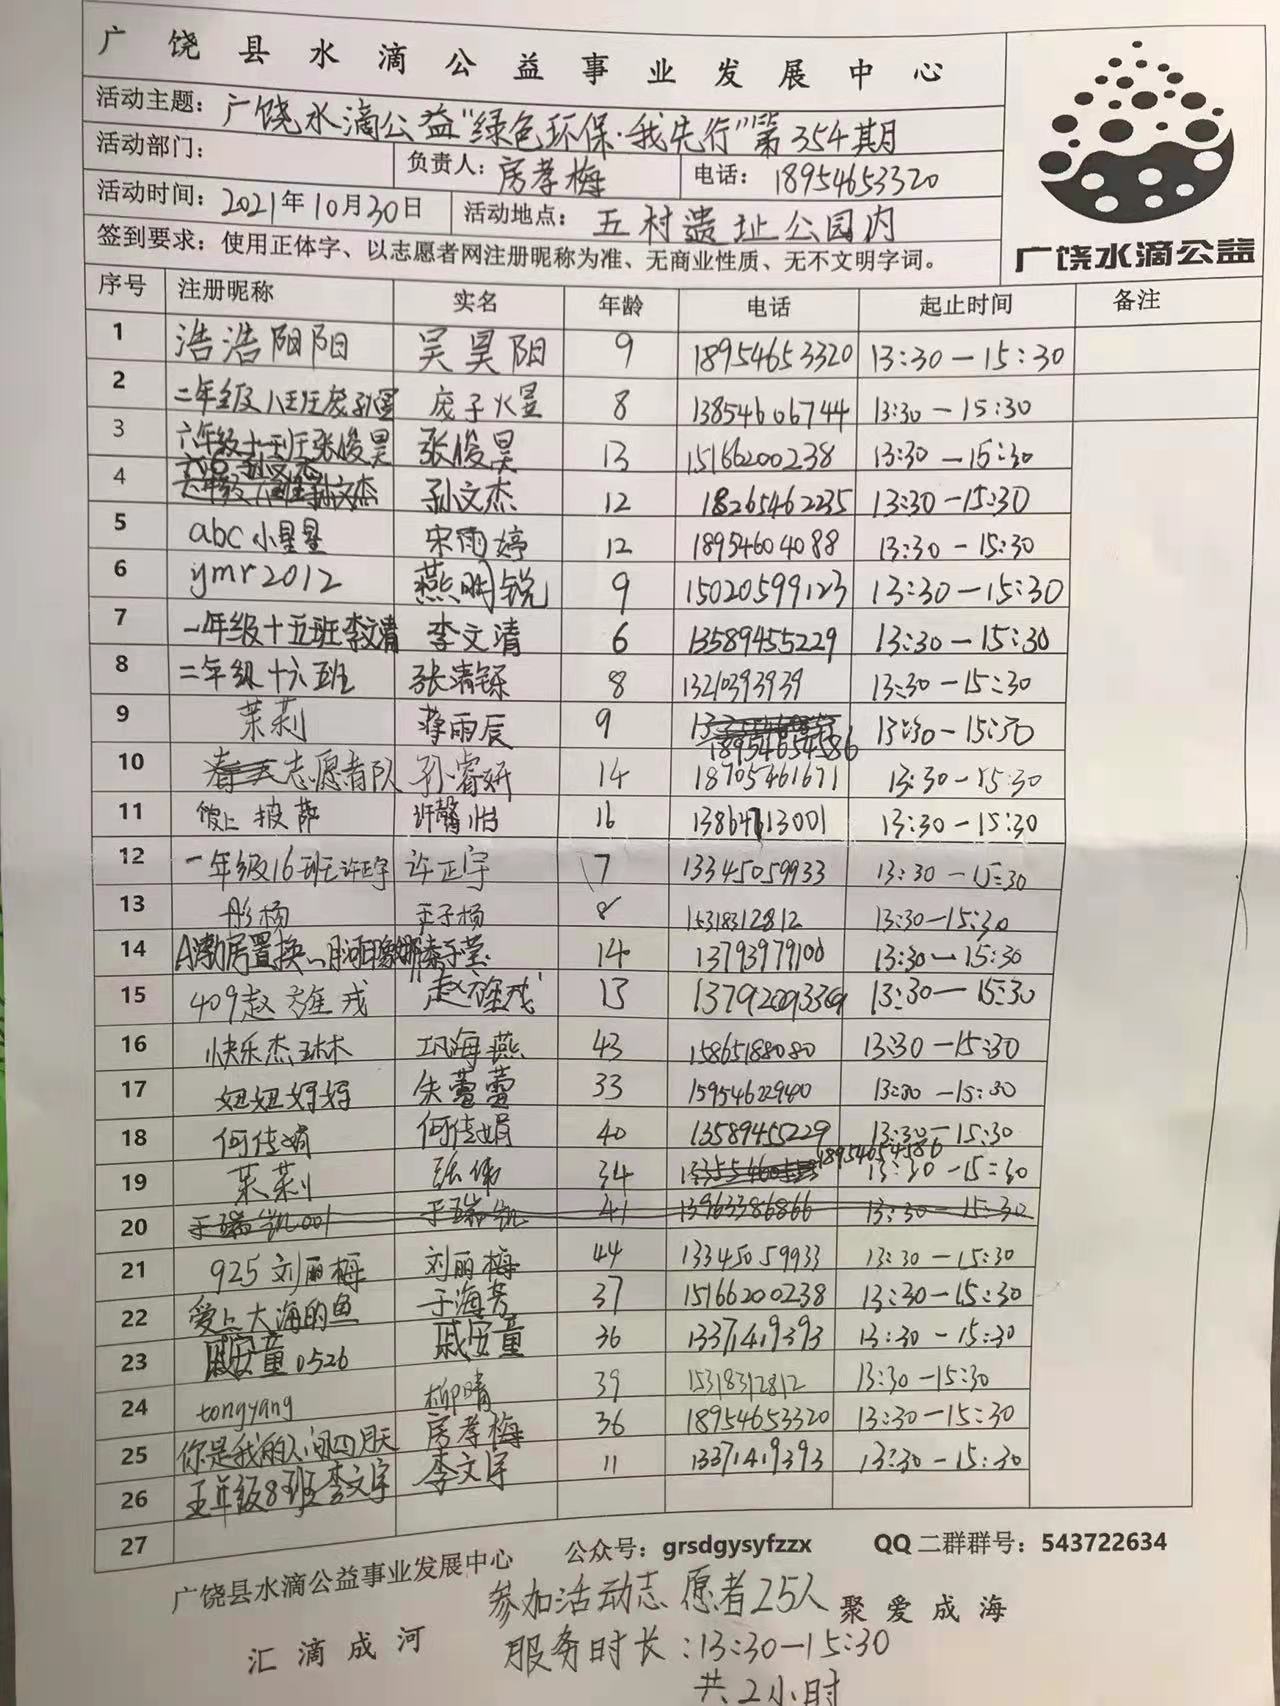 广饶县水滴公益事业发展中心
活动主题：广饶水滴公益"绿色环保·我先行"第354期
活动部门： 负责人：房孝梅 电话：18954653320
活动时间：2021年10月30日 活动地点：五村遗址公园内
签到要求：使用正体字、以志愿者网注册昵称为准、无商业性质、无不文明字词。
广饶水滴公益
序号 注册昵称 实名 年龄 电话 起止时间 备注
1 浩浩阳阳 吴昊阳 9 18954653320 13:30-15:30
2 二年级八班 8 13854606744 13:30-15:30
3 六年级十一班张俊昊 张俊昊 13 15166200238 13:30-15:30
4 孙文杰 孙文杰 12 18265462235 13:30-15:30
5 abc小星星 宋雨婷 12 18954604088 13:30-15:30
6 ymr2012 燕明锐 9 15020599123 13:30-15:30
7 一年级十五班李文清 李文清 6 13589455229 13:30-15:30
8 二年级十六班 张清铄 8 13210393939 13:30-15:30
9 茉莉 蒋雨辰 9 18954654586 13:30-15:30
10 志愿者队 孙睿妍 14 18705461671 13:30-15:30
11 披萨 许馨怡 16 13864613001 13:30-15:30
12 一年级16班许正宇 许正宇 7 13345059933 13:30-15:30
13 彤杨 王子杨 8 15318312812 13:30-15:30
14 14 13793979100 13:30-15:30
15 409赵 赵 13 13792093369 13:30-15:30
16 快乐杰琳 巩海燕 43 15865188080 13:30-15:30
17 妞妞妈妈 朱蕾蕾 33 15954622940 13:30-15:30
18 何佳娟 何佳娟 40 13589455229 13:30-15:30
19 茉莉 张伟 34 18954654586 13:30-15:30
20 于瑞凯001 于瑞凯 41 13963386866 13:30-15:30
21 925刘丽梅 刘丽梅 44 13345059933 13:30-15:30
22 爱上大海的鱼 于海芳 37 15166200238 13:30-15:30
23 戚安童0526 戚安童 36 13371419393 13:30-15:30
24 tongyang 柳晴 39 15318312812 13:30-15:30
25 你是我的人间四月天 房孝梅 36 18954653320 13:30-15:30
26 五年级8班李文宇 李文宇 11 13371419393 13:30-15:30
27
广饶县水滴公益事业发展中心 公众号：grsdgysyfzzx QQ二群群号：543722634
参加活动志愿者25人
汇滴成河 聚爱成海
服务时长：13:30-15:30
共2小时